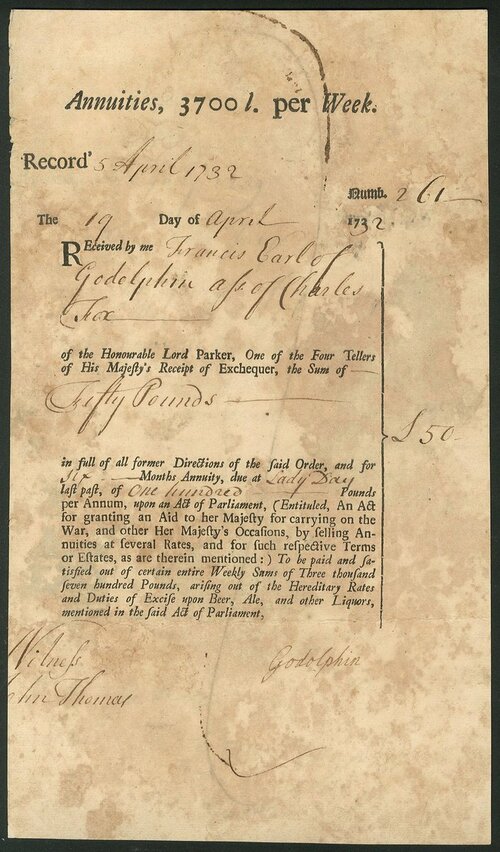 Annuities, 3700 l. per Week.
Record' 5 April 1732
Numb. 261
The 19 Day of April 1732
Received by me Francis Earl of
Godolphin ass of Charles
Fox
of the Honourable Lord Parker, One of the Four Tellers
of His Majesty's Receipt of Exchequer, the Sum of
Fifty Pounds
£50
in full of all former Directions of the said Order, and for
Six Months Annuity, due at Lady Day
last past, of One hundred Pounds
per Annum, upon an Act of Parliament, (Entituled, An Act
for granting an Aid to her Majesty for carrying on the
War, and other Her Majesty's Occasions, by selling An-
nuities at several Rates, and for such respective Terms
or Estates, as are therein mentioned:) To be paid and sa-
tisfied out of certain entire Weekly Sums of Three thousand
seven hundred Pounds, arising out of the Hereditary Rates
and Duties of Excise upon Beer, Ale, and other Liquors,
mentioned in the said Act of Parliament.
Witness
John Thomas
Godolphin